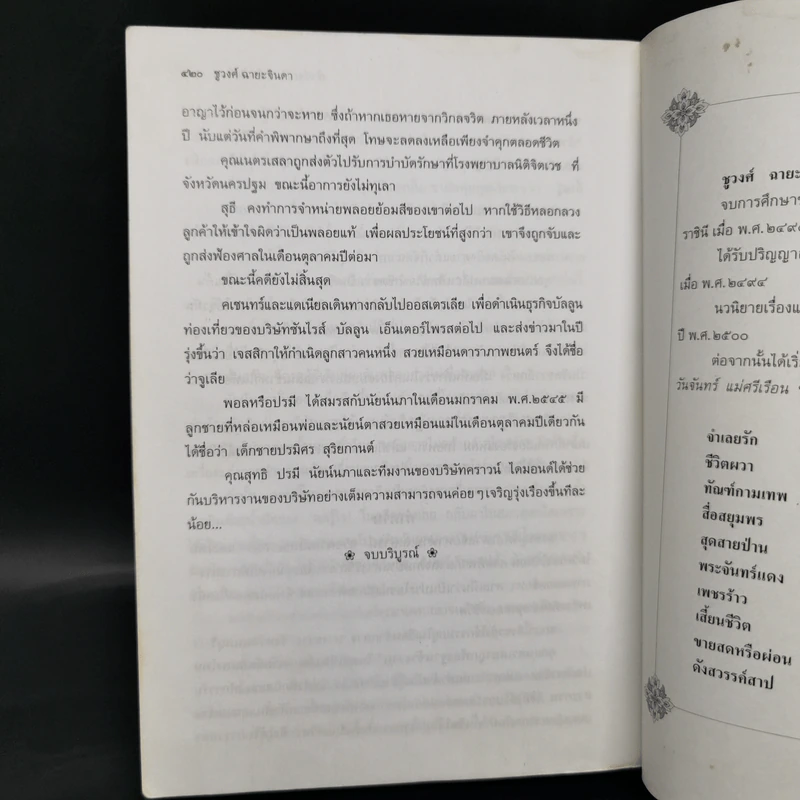 ๔๒๐ ชูวงศ์ ฉายะจินดา
อาญาไว้ก่อนจนกว่าจะหาย ซึ่งถ้าหากเธอหายจากวิกลจริต ภายหลังเวลาหนึ่ง
ปี นับแต่วันที่คำพิพากษาถึงที่สุด โทษจะลดลงเหลือเพียงจำคุกตลอดชีวิต
คุณเนตรเสลาถูกส่งตัวไปรับการบำบัดรักษาที่โรงพยาบาลนิติจิตเวช ที่
จังหวัดนครปฐม ขณะนี้อาการยังไม่ทุเลา
สุธี คงทำการจำหน่ายพลอยย้อมสีของเขาต่อไป หากใช้วิธีหลอกลวง
ลูกค้าให้เข้าใจผิดว่าเป็นพลอยแท้ เพื่อผลประโยชน์ที่สูงกว่า เขาจึงถูกจับและ
ถูกส่งฟ้องศาลในเดือนตุลาคมปีต่อมา
ขณะนี้คดียังไม่สิ้นสุด
คเชนทร์และแดเนียลเดินทางกลับไปออสเตรเลีย เพื่อดำเนินธุรกิจบัลลูน
ท่องเที่ยวของบริษัทซันไรส์ บัลลูน เอ็นเตอร์ไพรสต่อไป และส่งข่าวมาในปี
รุ่งขึ้นว่า เจสสิกาให้กำเนิดลูกสาวคนหนึ่ง สวยเหมือนดาราภาพยนตร์ จึงได้ชื่อ
ว่าจูเลีย
พอลหรือปรมี ได้สมรสกับนัยน์นภาในเดือนมกราคม พ.ศ.๒๕๔๕ มี
ลูกชายที่หล่อเหมือนพ่อและนัยน์ตาสวยเหมือนแม่ในเดือนตุลาคมปีเดียวกัน
ได้ชื่อว่า เด็กชายปรมิศร สุริยกานต์
คุณสุทธิ ปรมี นัยน์นภาและทีมงานของบริษัทคราวน์ ไดมอนด์ได้ช่วย
กันบริหารงานของบริษัทอย่างเต็มความสามารถจนค่อยๆเจริญรุ่งเรืองขึ้นทีละ
น้อย...
จบบริบูรณ์
ชูวงศ์ ฉายะ
จบการศึกษา
ราชินี เมื่อ พ.ศ.๒๔๙
ได้รับปริญญา
เมื่อ พ.ศ.๒๔๙๔
นวนิยายเรื่อง
ปี พ.ศ.๒๕๐๐
ต่อจากนั้นได้เริ่
วันจันทร์ แม่ศรีเรือน
จำเลยรัก
ชีวิตผวา
ทัณฑ์กามเทพ
สื่อสยุมพร
สุดสายป่าน
พระจันทร์แดง
เพชรร้าว
เสี้ยนชีวิต
ขายสดหรือผ่อน
ดังสวรรค์สาป